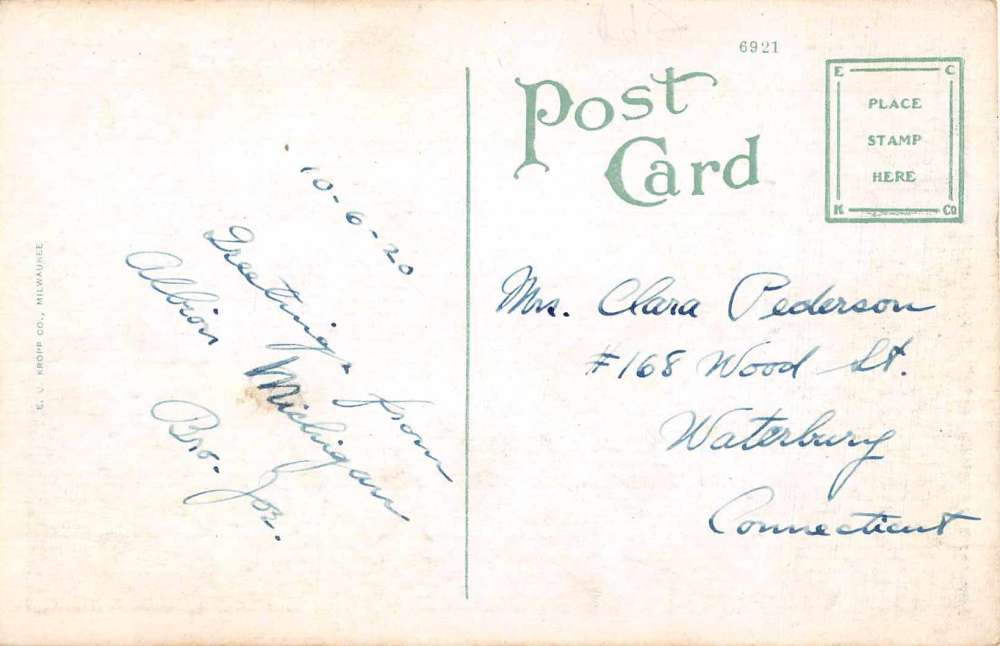 6921
Post
Card
E C
PLACE
STAMP
HERE
K Co
10-6-20
Greetings from
Albion Michigan
Bro. Jos.
Mrs. Clara Pederson
#168 Wood St.
Waterbury
Connecticut
E. C. KROPP CO., MILWAUKEE